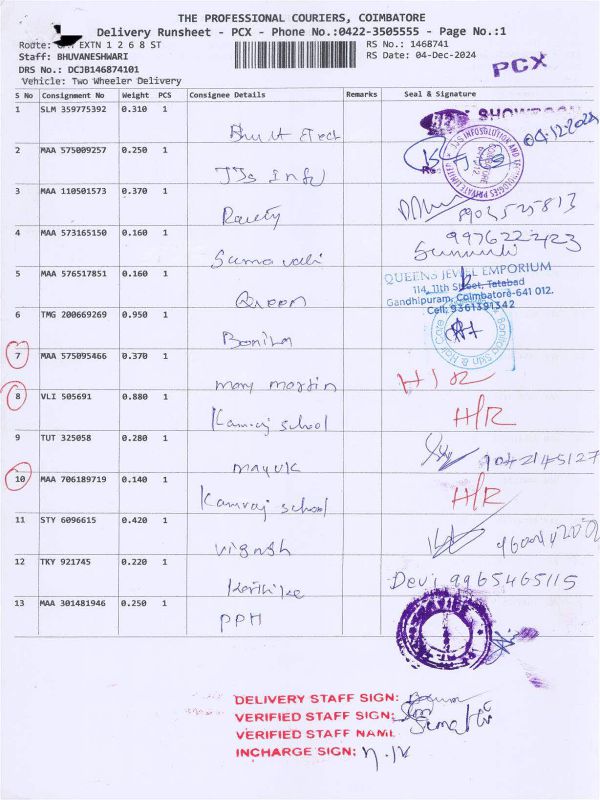 THE PROFESSIONAL COURIERS, COIMBATORE
Delivery Runsheet - PCX - Phone No.:0422-3505555 - Page No.:1
Route: EXTN 1 2 6 8 ST
RS No.: 1468741
Staff: BHUVANESHWARI
RS Date: 04-Dec-2024
DRS No.: DCJB146874101
PCX
Vehicle: Two Wheeler Delivery
S No Consignment No Weight PCS Consignee Details Remarks Seal & Signature
1 SLM 359775392 0.310 1
SHOWROOM
04.12.2024
2 MAA 575009257 0.250 1 JJs Info
JJS INFOSOLUTION AND TECHNOLOGIES PRIVATE LIMITED
3 MAA 110501573 0.370 1
4 MAA 573165150 0.160 1
9976222423
5 MAA 576517851 0.160 1 Queen
QUEENS JEWEL EMPORIUM
114, 11th Street, Tatabad
Gandhipuram, Coimbatore-641 012.
Cell: 9361391342
6 TMG 200669269 0.950 1
Skin & Hair
7 MAA 575095466 0.370 1 mary martin H/R
8 VLI 505691 0.880 1 Kamraj school H/R
9 TUT 325058 0.280 1 mayuk
10 MAA 706189719 0.140 1 Kamraj school H/R
11 STY 6096615 0.420 1 Vignsh
12 TKY 921745 0.220 1 Devi 9965465115
13 MAA 301481946 0.250 1 PPH
DELIVERY STAFF SIGN:
VERIFIED STAFF SIGN:
VERIFIED STAFF NAME
INCHARGE SIGN: